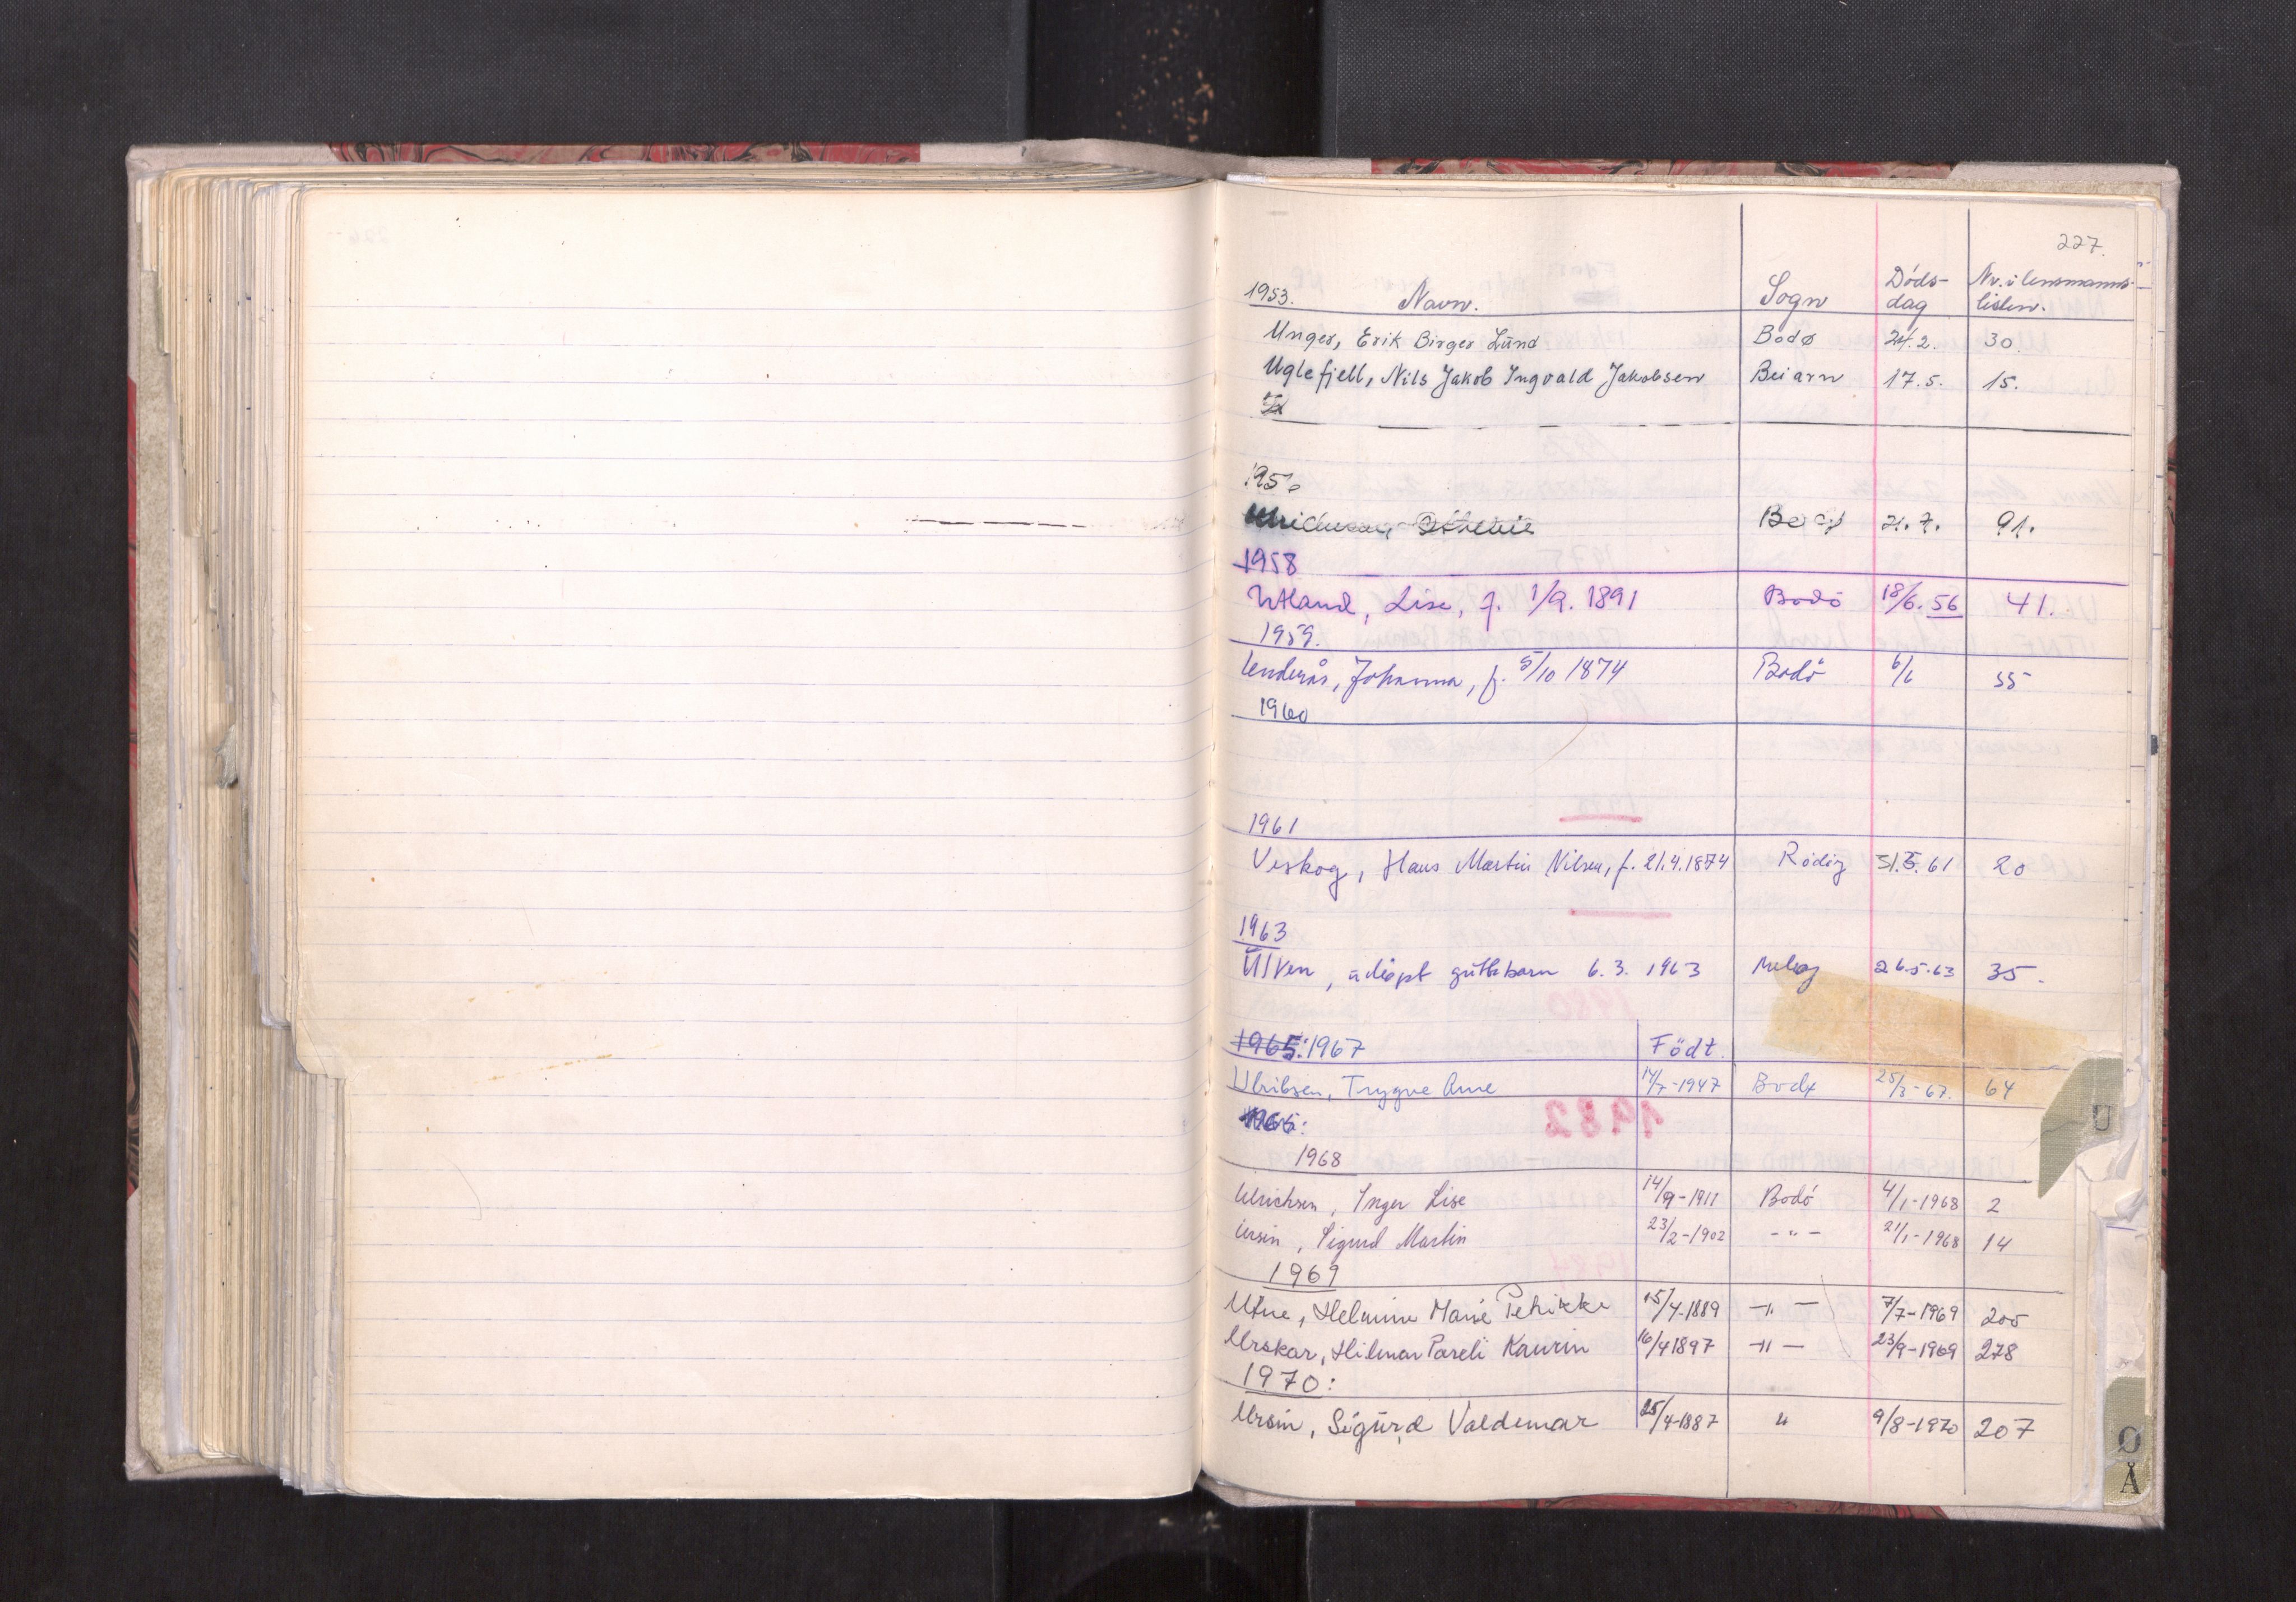 227.
1953. Navn. Sogn Døds-dag Nr. i lensmanns-listen.
Unger, Erik Birger Lund Bodø 24.2. 30.
Uglefjell, Nils Jakob Ingvald Jakobsen Beiarn 17.5. 15.
195
21.7. 91.
1958
Utland, Lise, f. 1/9. 1891 Bodö 18/6. 56 41.
1959.
Underås, Johanna, f. 5/10 1874 Bodö 6/6 55
1960
1961
Veskog, Hans Martin Nilsen, f. 21.4.1874 Rödöy 31.5.61 20
1963
Ulven, udöpt guttebarn 6.3. 1963 Meløy 26.5.63 35.
1965: 1967 Födt
Ulriksen, Trygve Arne 14/7-1947 Bodø 25/3-67. 64
1966:
1968
Ulrichsen, Inger Lise 14/9-1911 Bodö 4/1-1968 2
Ursin, Sigurd Martin 23/2-1902 -"- 21/1-1968 14
1969
Utne, Helmine Marie Petrikke 15/4-1889 -"- 7/7-1969 205
Urskar, Hilmar Pareli Kaurin 16/4 1897 -"- 23/9-1969 278
1970:
Ursin, Sigurd Valdemar 25/4-1887 " 9/8-1970 207
U
Ø
Å